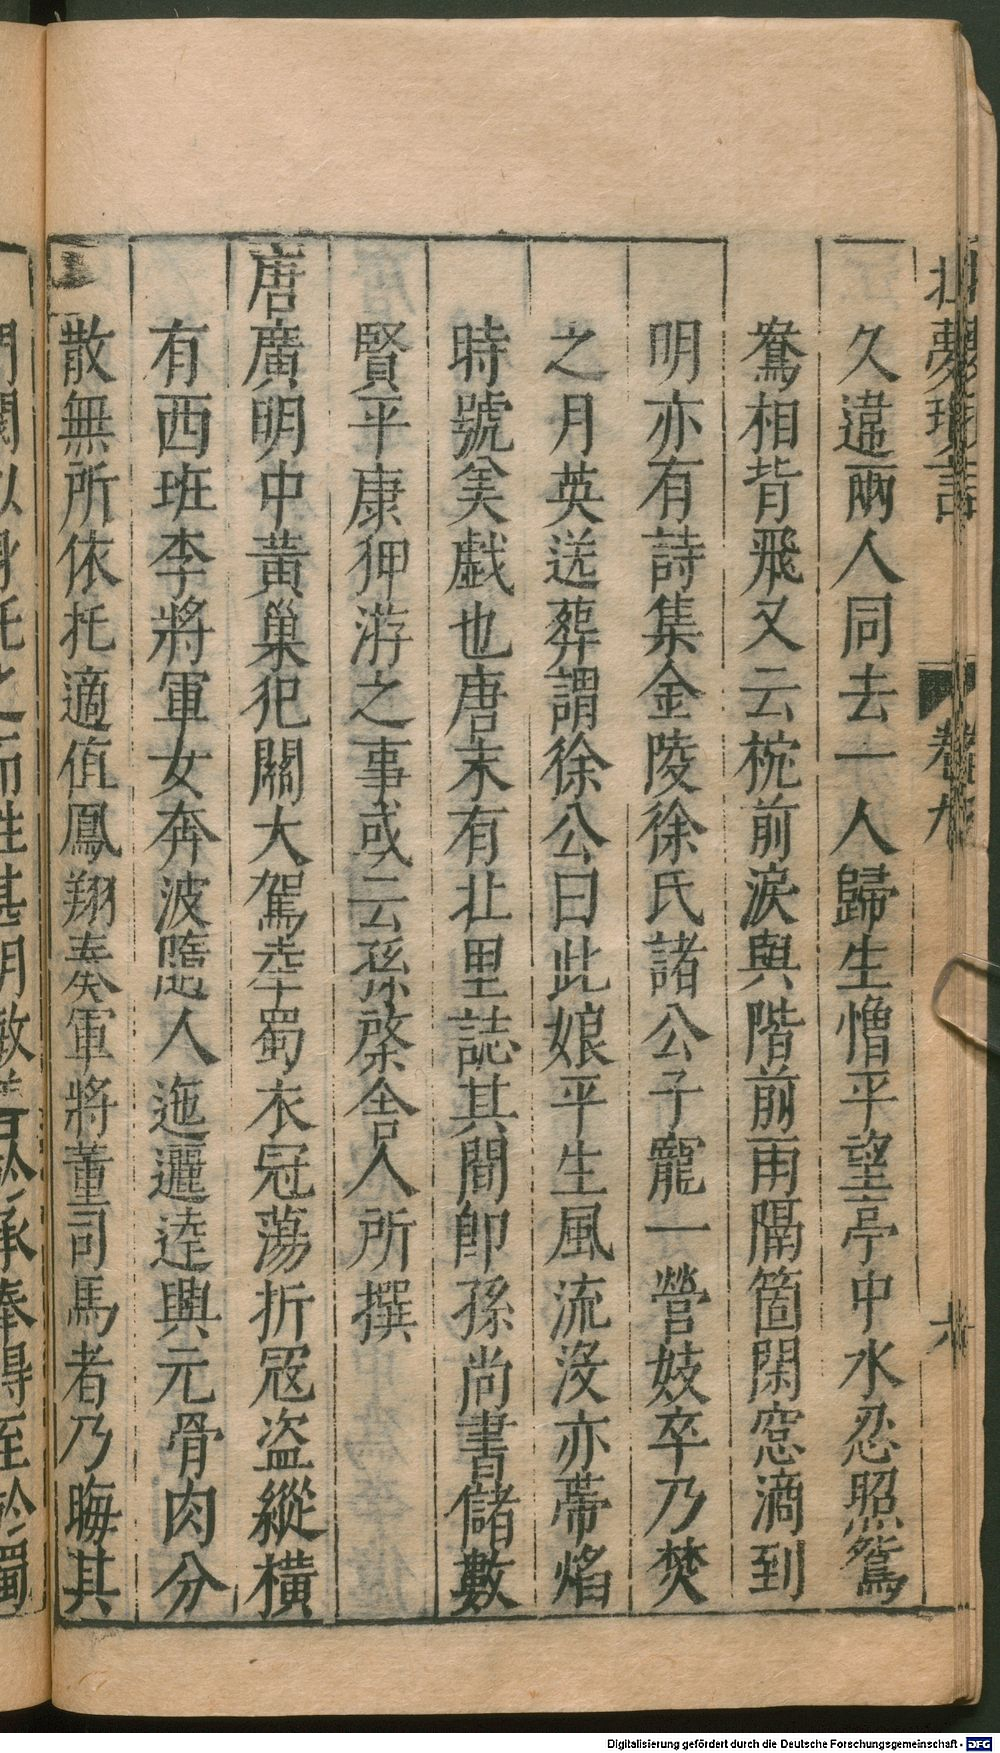 北夢瑣言
卷九
六
久違兩人同去一人歸生憎平望亭中水忍照鴛
鴦相背飛又云枕前淚與階前雨隔箇閑窓滴到
明亦有詩集金陵徐氏諸公子寵一營妓卒乃焚
之月英送葬謂徐公曰此娘平生風流沒亦帶焰
時號美戯也唐末有北里誌其間即孫尚書儲數
賢平康狎游之事或云孫棨舍人所撰
唐廣明中黃巢犯闕大駕幸蜀衣冠蕩折冦盜縱橫
有西班李將軍女奔波隨人迤邐達興元骨肉分
散無所依托適值鳳翔奏軍將董司馬者乃晦其
門閥以身托之而性甚明敏
承奉得至於蜀
Digitalisierung gefördert durch die Deutsche Forschungsgemeinschaft - DFG